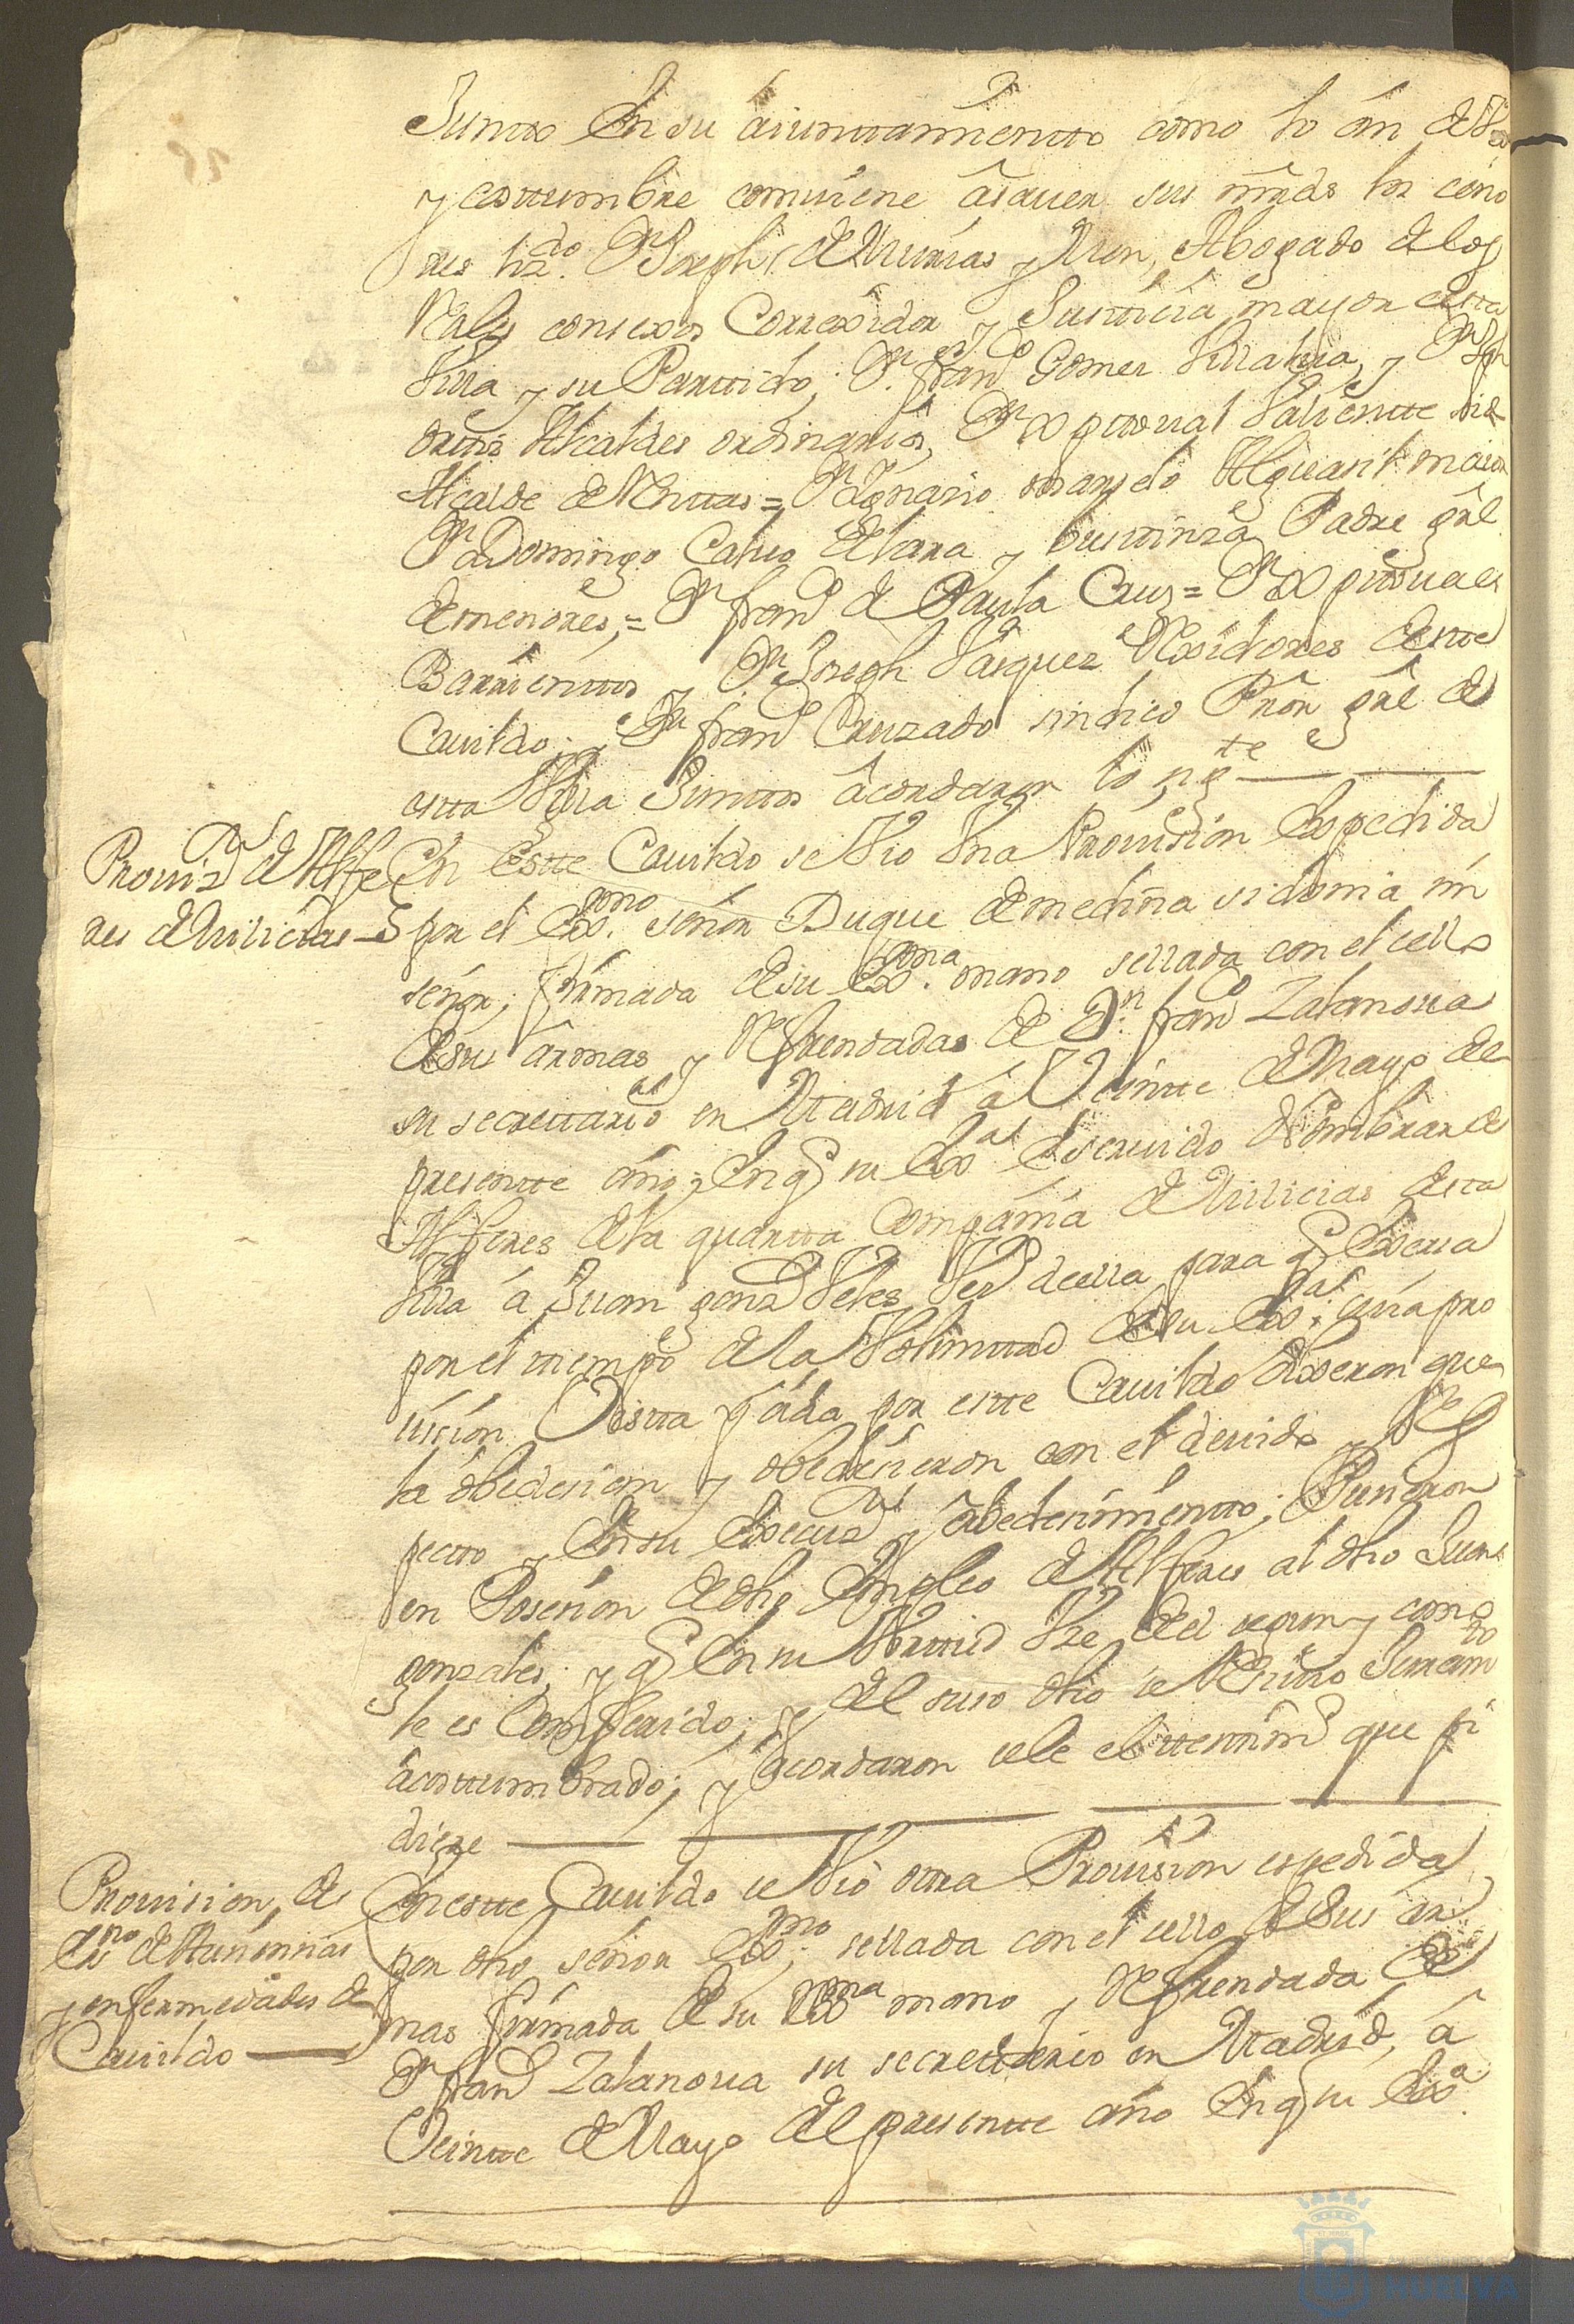 Juntos En su aiuntamiento como lo an de Uso
y costtumbre comuiene a sauer sus mrds los seño
res lizdo Dn Joseph de Murias y Mon, Abogado de los
Rales consexos Correxidor y Justticia mayor desta
Villa y su Parttido; Dn Franco Gomez Villalua, y Dn Jph
Alcaldes ordinarios, Dn Xptoval Valiente
Alcalde de Rentas = Dn Ygnacio Alguasil maior
Dn Domingo Calvo de Lara y Busttinza Padre gral
de menores, = Dn franco de Paula Cruz = Dn Xptoval
Barrientos y Dn Joseph Vasquez Rexidores destte
Cauildo; y Dn franco Cruzado sindico Pror gral de
estta Villa Junttos acordaron lo sigte
Provizon de Alfe
res de Milicias
En Estte Cauildo se Vio Vna Prouision Expedida
por el Exmo señor Duque de medina sidonia mi
señor; firmada de su Exma mano sellada con el sello
de sus armas y Refrendadas de Dn franco Zalanoua
su secrettario en Madrid a Veintte de Mayo de
presentte año; En q su Exa a seruido Nombrar de
Alferes de la quartta Compañia de Milicias desta
Villa a Juan gonz Veles Vezo de ella para q Exersa
por el tiempo de la Volunttad de su Exa; cuia pro
uision Vistta por estte Cauildo dixeron que
la obedesian y obedesieron con el deuido Res
pectto y En su Execuzon y obedesimientto; Pusieron
en Posesion de dho Empleo de Alferes al dho Juan
gonzales; y q En su Virttud Vse del segun y como
le es Conferido; y del suso dho se Reziuio Juramto
acosttumbrado; y acordaron se le de el testtimo que pi
diere
Prouision de
Esno de
y enfermedades de
Cauildo
En estte Cauildo se Vio ottra Prouision espedida
por dho señor Exmo sellada con el sello de Sus ar
mas firmada de su Exma mano y Refrendada de
Dn franco Zalanoua su secrettario en Madrid, a
Veintte de Mayo del presentte año En q su Exa